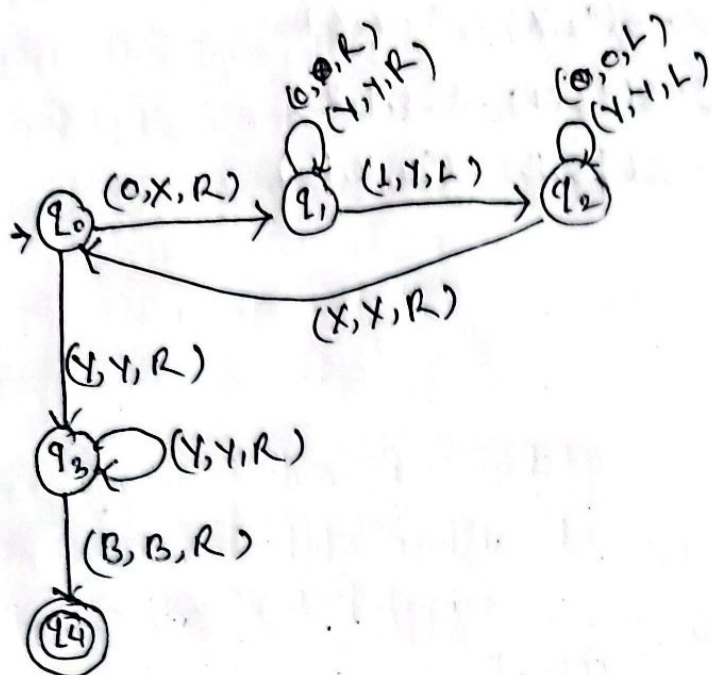 (0, 0, R)
(Y, Y, R)
(0, 0, L)
(Y, Y, L)
(0, X, R)
(1, Y, L)
q0
q1
q2
(X, X, R)
(Y, Y, R)
q3
(Y, Y, R)
(B, B, R)
q4